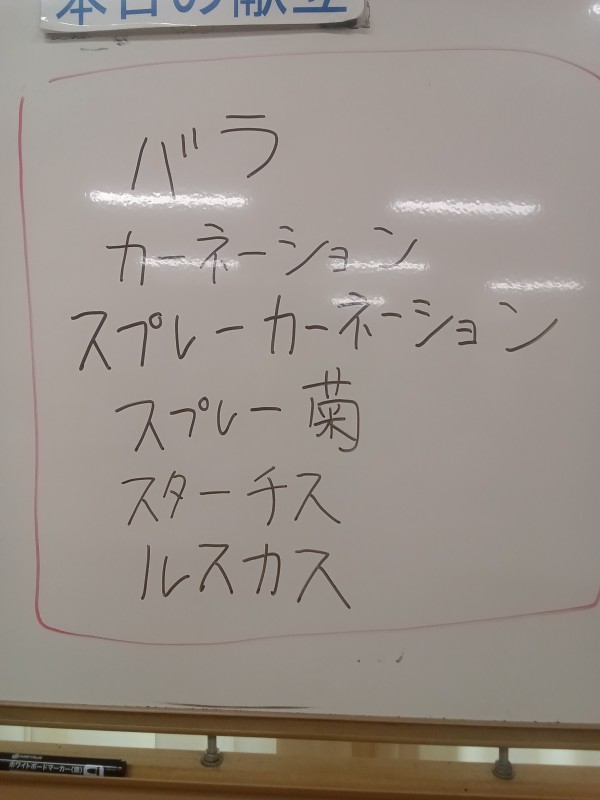 本日の献立
バラ
カーネーション
スプレーカーネーション
スプレー菊
スターチス
ルスカス
ホワイトボードマーカー